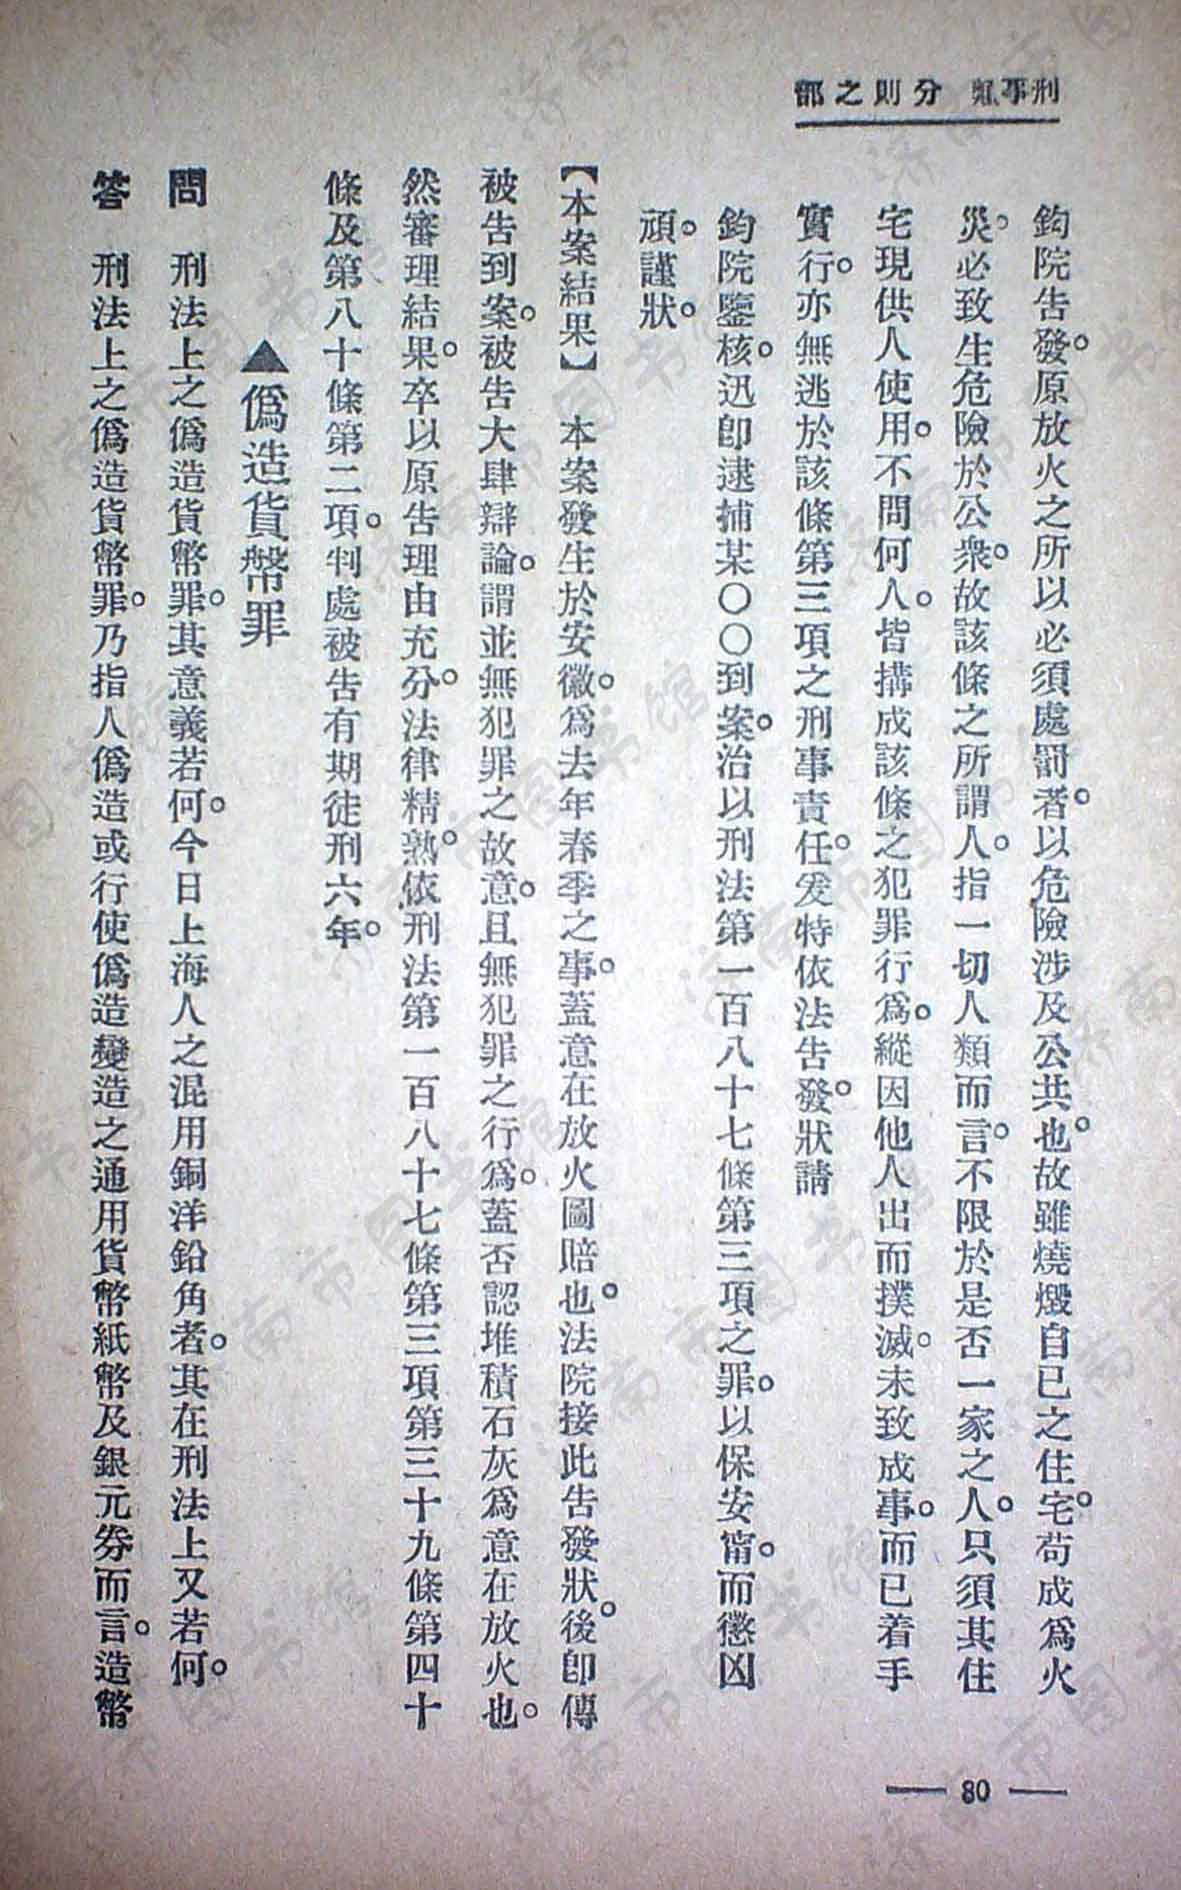 刑事類 分則之部
鈞院告發。原放火之所以必須處罰者。以危險涉及公共也。故雖燒燬自己之住宅。苟成爲火
災。必致生危險於公衆。故該條之所謂人。指一切人類而言。不限於是否一家之人。只須其住
宅現供人使用。不問何人。皆構成該條之犯罪行爲。縱因他人出而撲滅。未致成事。而已着手
實行。亦無逃於該條第三項之刑事責任。爰特依法告發。狀請
鈞院鑒核。迅卽逮捕某〇〇到案。治以刑法第一百八十七條第三項之罪。以保安甯。而懲凶
頑。謹狀。
【本案結果】 本案發生於安徽。爲去年春季之事。蓋意在放火圖賠也。法院接此告發狀後。卽傳
被告到案。被告大肆辯論。謂並無犯罪之故意。且無犯罪之行爲。蓋否認堆積石灰爲意在放火也。
然審理結果。卒以原告理由充分。法律精熟。依刑法第一百八十七條第三項第三十九條第四十
條及第八十條第二項。判處被告有期徒刑六年。
▲僞造貨幣罪
問 刑法上之僞造貨幣罪。其意義若何。今日上海人之混用銅洋鉛角者。其在刑法上又若何。
答 刑法上之僞造貨幣罪。乃指人僞造或行使僞造變造之通用貨幣紙幣及銀元券而言。造幣
— 80 —
济南市图书馆